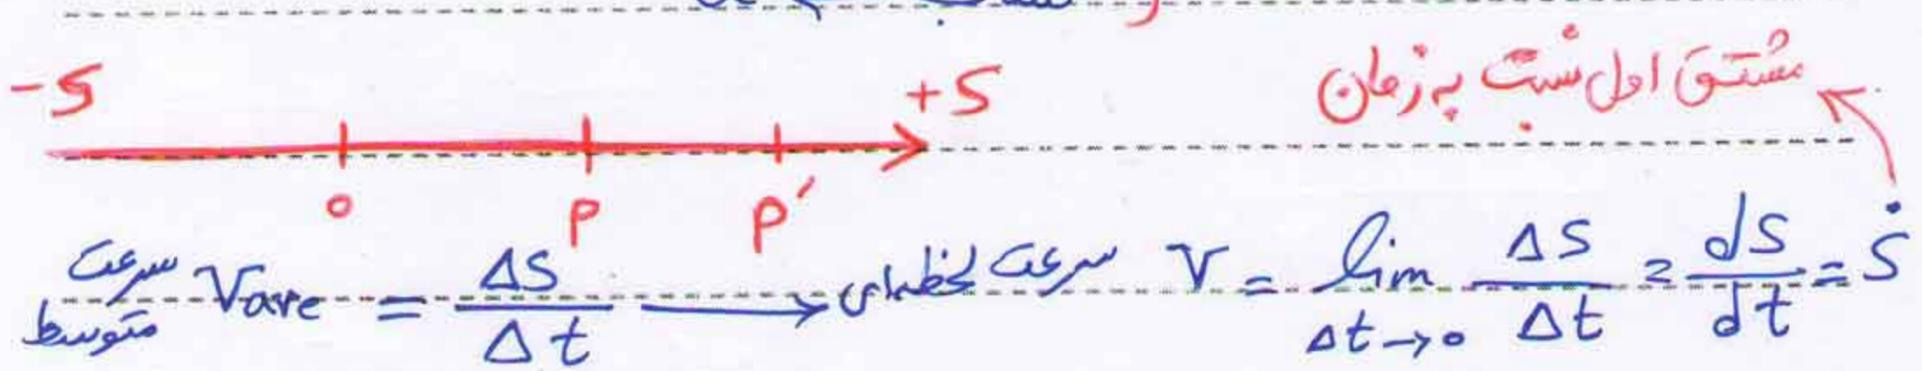 -S +S مشتق اول نسبت به زمان
o P P'
سرعت متوسط Vave = ΔS/Δt → سرعت لحظه‌ای V = lim Δt→0 ΔS/Δt = dS/dt = Ṡ